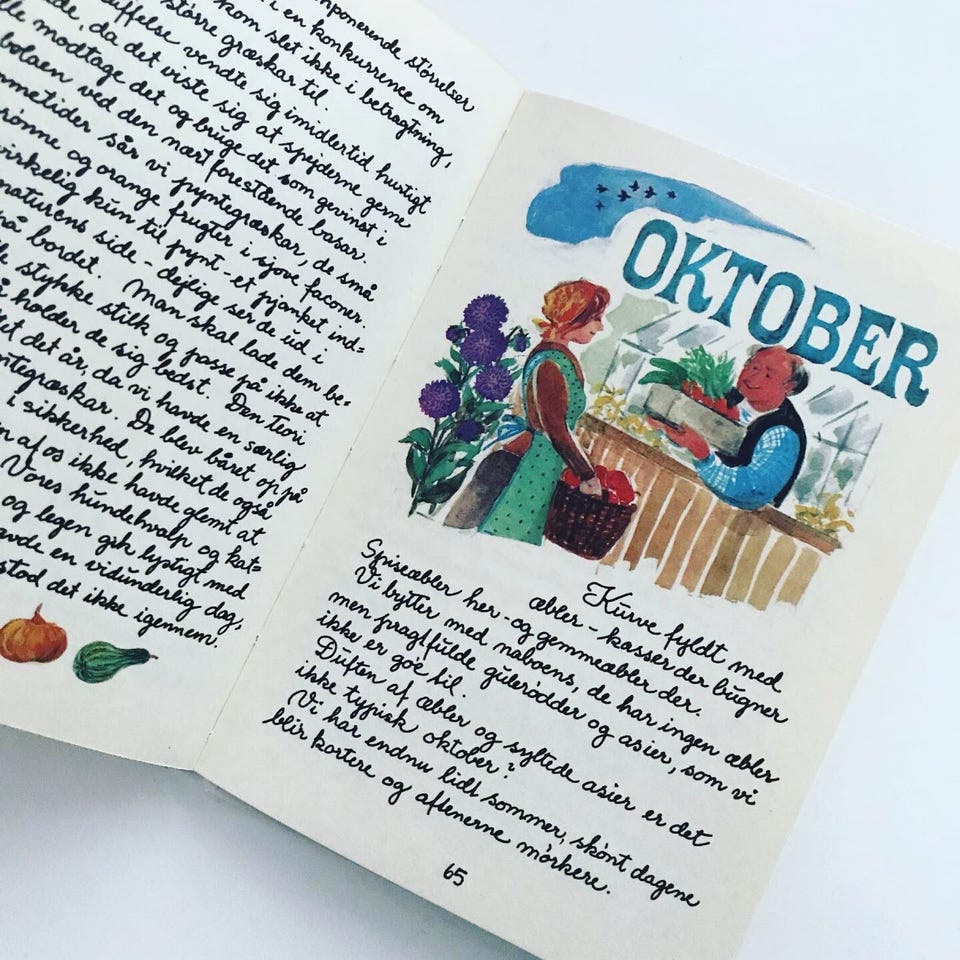 mponerende størrelser
i en konkurrence om
større græskar til.
kom slet ikke i betragtning,
uffelse vendte sig imidlertid hurtigt
de, da det viste sig at spejderne gerne
lle modtage det og bruge det som gevinst i
bolaen ved den nært forestående basar.
mmetider sår vi pyntegræskar, de små
rønne og orange frugter i sjove faconer.
virkelig kun til pynt - et pjanket ind=
naturens side - dejlige ser de ud i
på bordet. Man skal lade dem be=
le stykke stilk og passe på ikke at
å holder de sig bedst. Den teori
et det år, da vi havde en særlig
ntegræskar. De blev båret op på
i sikkerhed, hvilket de også
n af os ikke havde glemt at
Vores hundehvalp og kat=
og legen gik lystigt med
avde en vidunderlig dag,
stod det ikke igennem.
OKTOBER
Kurve fyldt med
æbler - kasser der bugner
Spiseæbler her - og gemmeæbler der.
Vi bytter med naboens, de har ingen æbler
men pragtfulde gulerødder og asier, som vi
ikke er go'e til.
Duften af æbler og syltede asier er det
ikke typisk oktober?
Vi har endnu lidt sommer, skønt dagene
blir kortere og aftenerne mörkere.
65